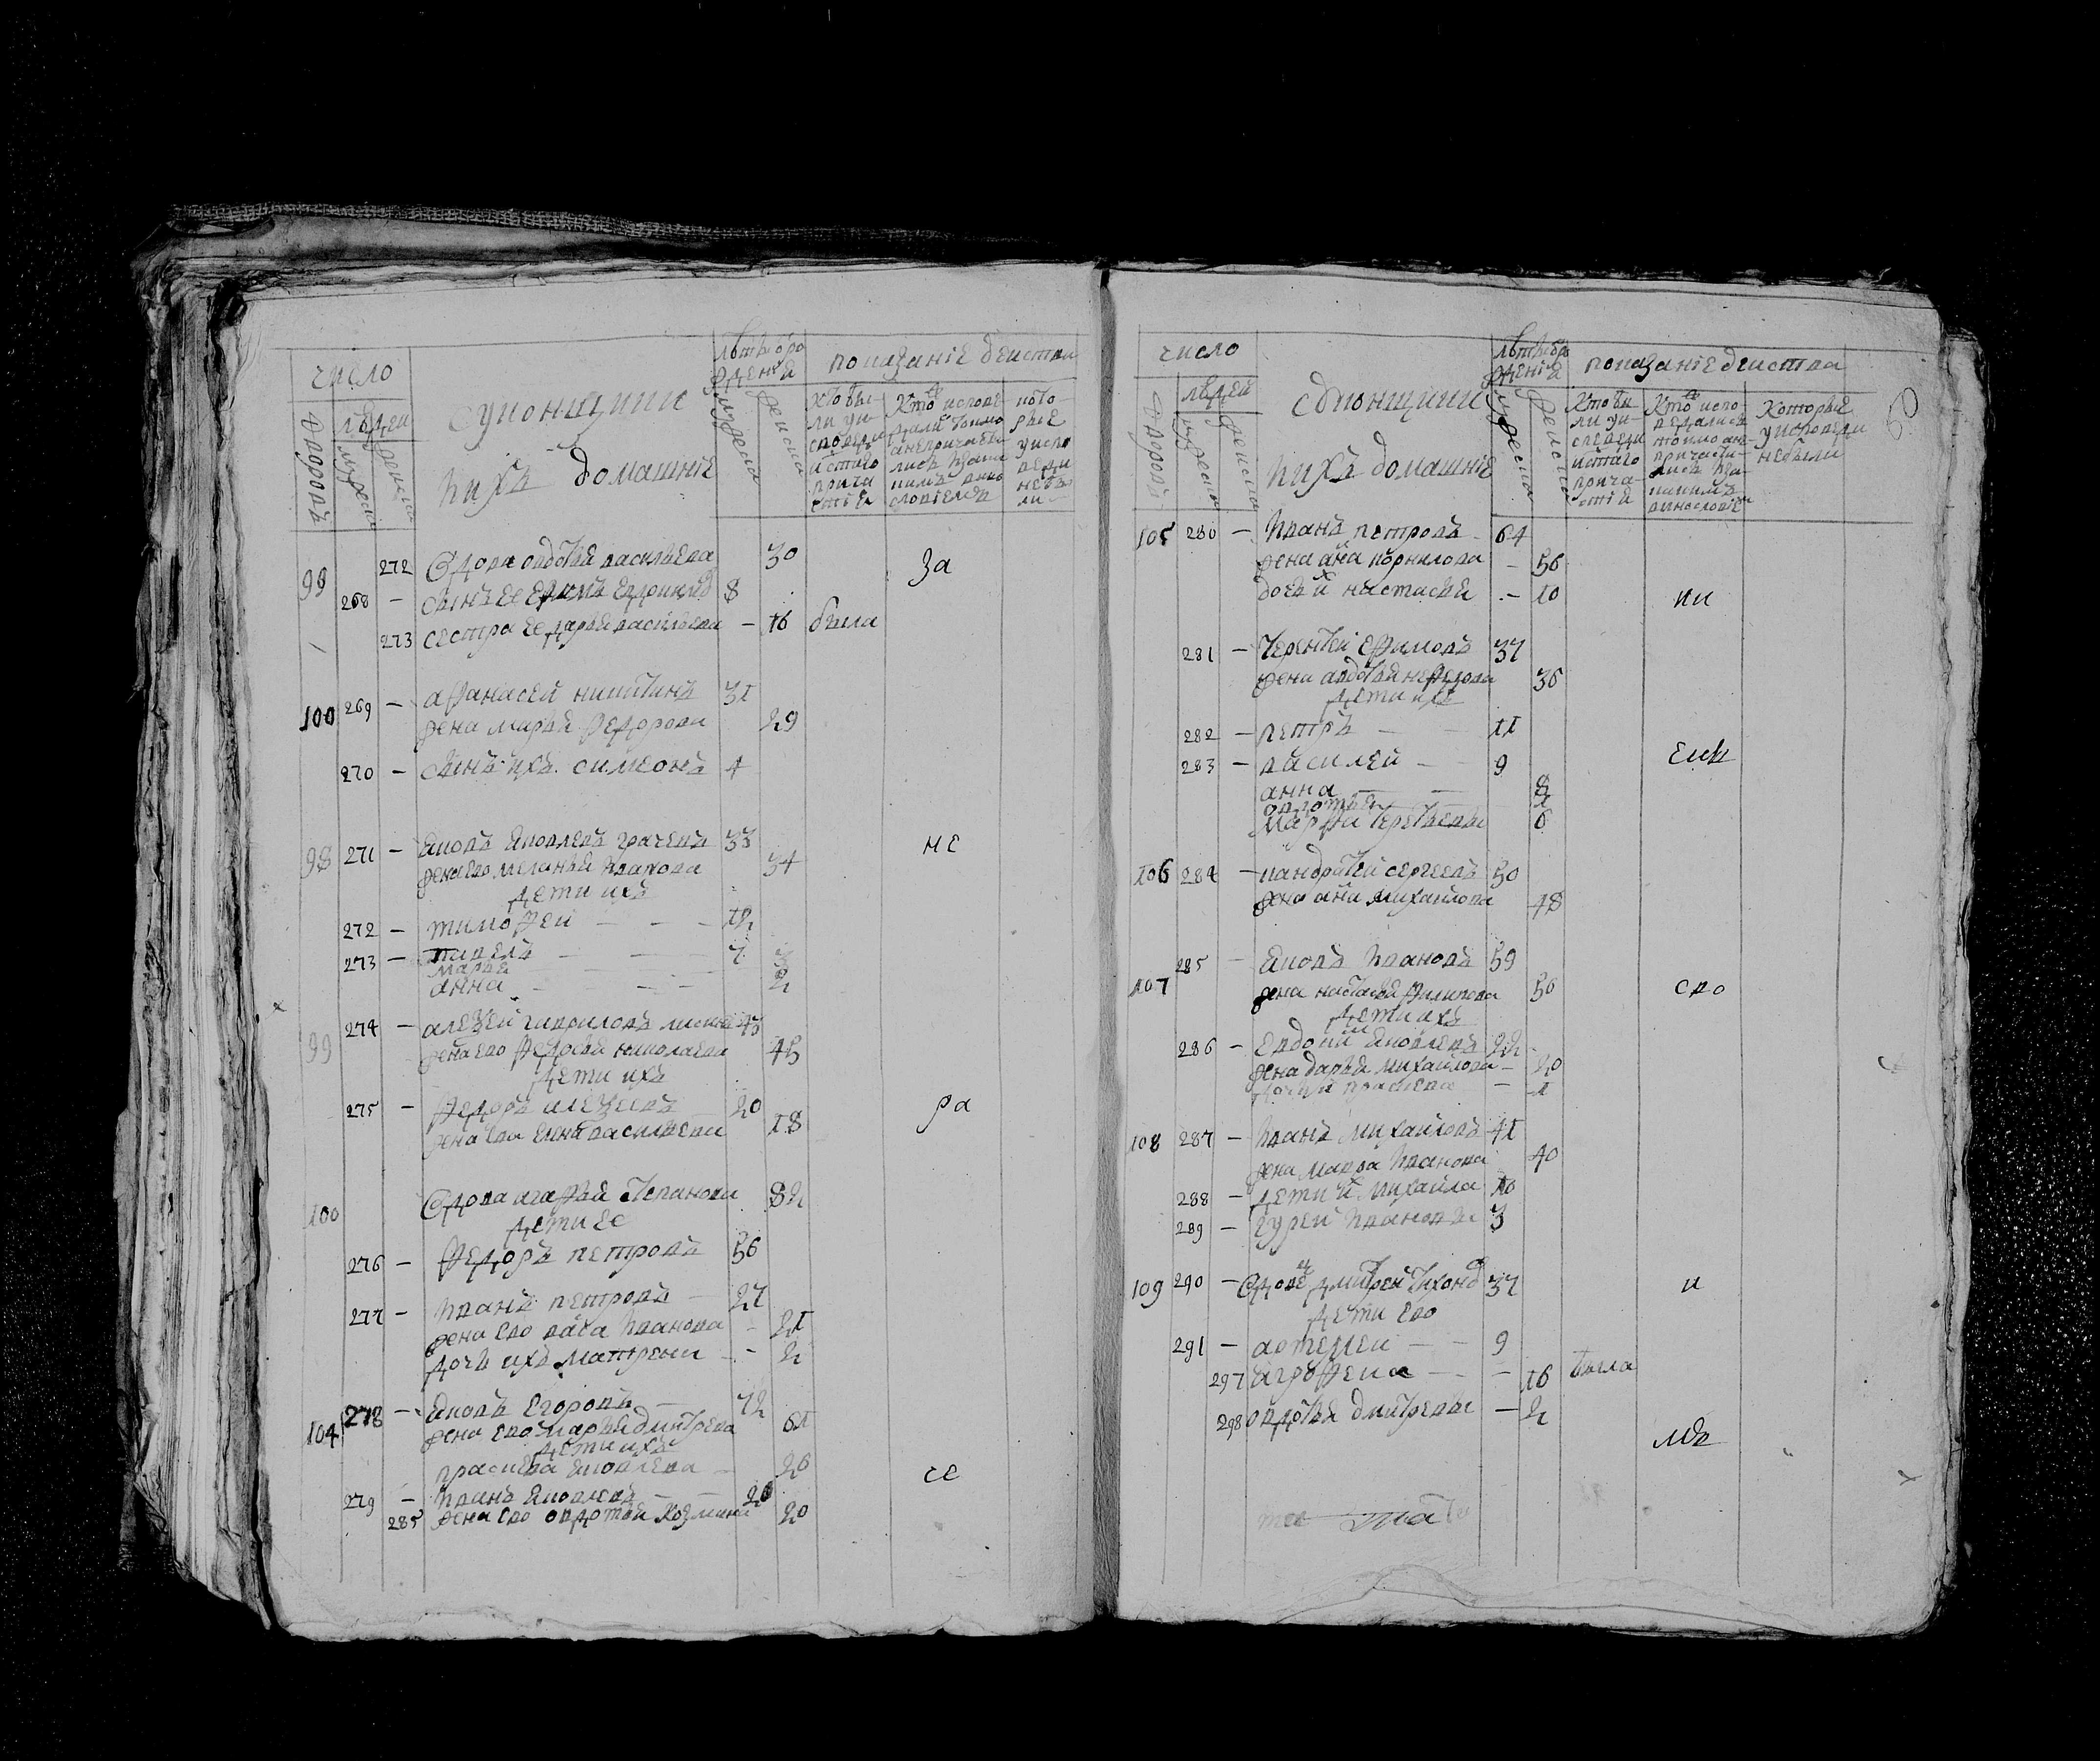 число
людеи
дворовъ
мужеска
женска
суконщики
ихъ домашніе
лѣтъ от рождениѧ
мужеска
женска
показаніе действа
кто были у исповеди и стаго причастиѧ
Кто исповедались токмо а не причастились
которые у исповеди не были
272 вдова авдотья васильева 30
99 268 — сынъ ее 8
273 сестра ее дарья васильева — 16 была
за
100 269 — афанасей никитинъ 31
жена марья федорова 29
270 — сынъ ихъ симеонъ 4
98 271 — Яковъ Яковлевъ грачевъ 33
жена ево меланья 34
дети ихъ
не
272 — тимофеи — 12
273 — павелъ — 7
марья — 3
анна — 2
99 274 — алеѯеи гавриловъ 43
жена ево федосья николаева 45
дети ихъ
275 — федоръ алеѯеевъ 20
жена ево елена васильева 18
ра
100 вдова агафья степанова 82
дети ее
276 — федоръ петровъ 56
277 — иванъ петровъ — 27
жена ево васа иванова — 21
дочь ихъ матрена — 2
104 278 — Яковъ Егоровъ — 72
жена ево марья дмитрева 61
дети ихъ
праскева яковлева — 26
се
279 — иванъ яковлевъ — 20
285 жена ево авдотья козмина 20
число
людей
дворовъ
мужеска
женска
суконщики
ихъ домашніе
лѣтъ от рожденіѧ
мужеска
женска
показаніе действа
Кто были у исповеди и стаго причастіѧ
Кто исповедались токмо а не причастились
Которые у исповеди не были
105 280 — иванъ петровъ — 64
жена анна корнилова — 56
дочь их настасья — 10
ки
281 — терентей ефимовъ 37
жена авдотья нефедова 36
дети ихъ
282 — петръ — 11
283 — василей — 9
еик
анна — 8
марфа терентьевы 6
106 284 — кандратей сергеевъ 50
жена анна михаилова 48
285 — Яковъ ивановъ 59
107 жена настасья филипова 50
дети ихъ
сво
286 — Евдоким яковлевъ 22
жена дарья михайлова — 20
дочь их праскева — 1
108 287 — иванъ михаиловъ 41
жена марфа иванова 40
288 — дети их михаила 10
289 — гурей ивановы 3
109 290 — вдовец дмитрей тихонов 37
дети ево
и
291 — артемей — 9
297 аграфена — 16 была
298 авдотья дмитревы — 2
мъ